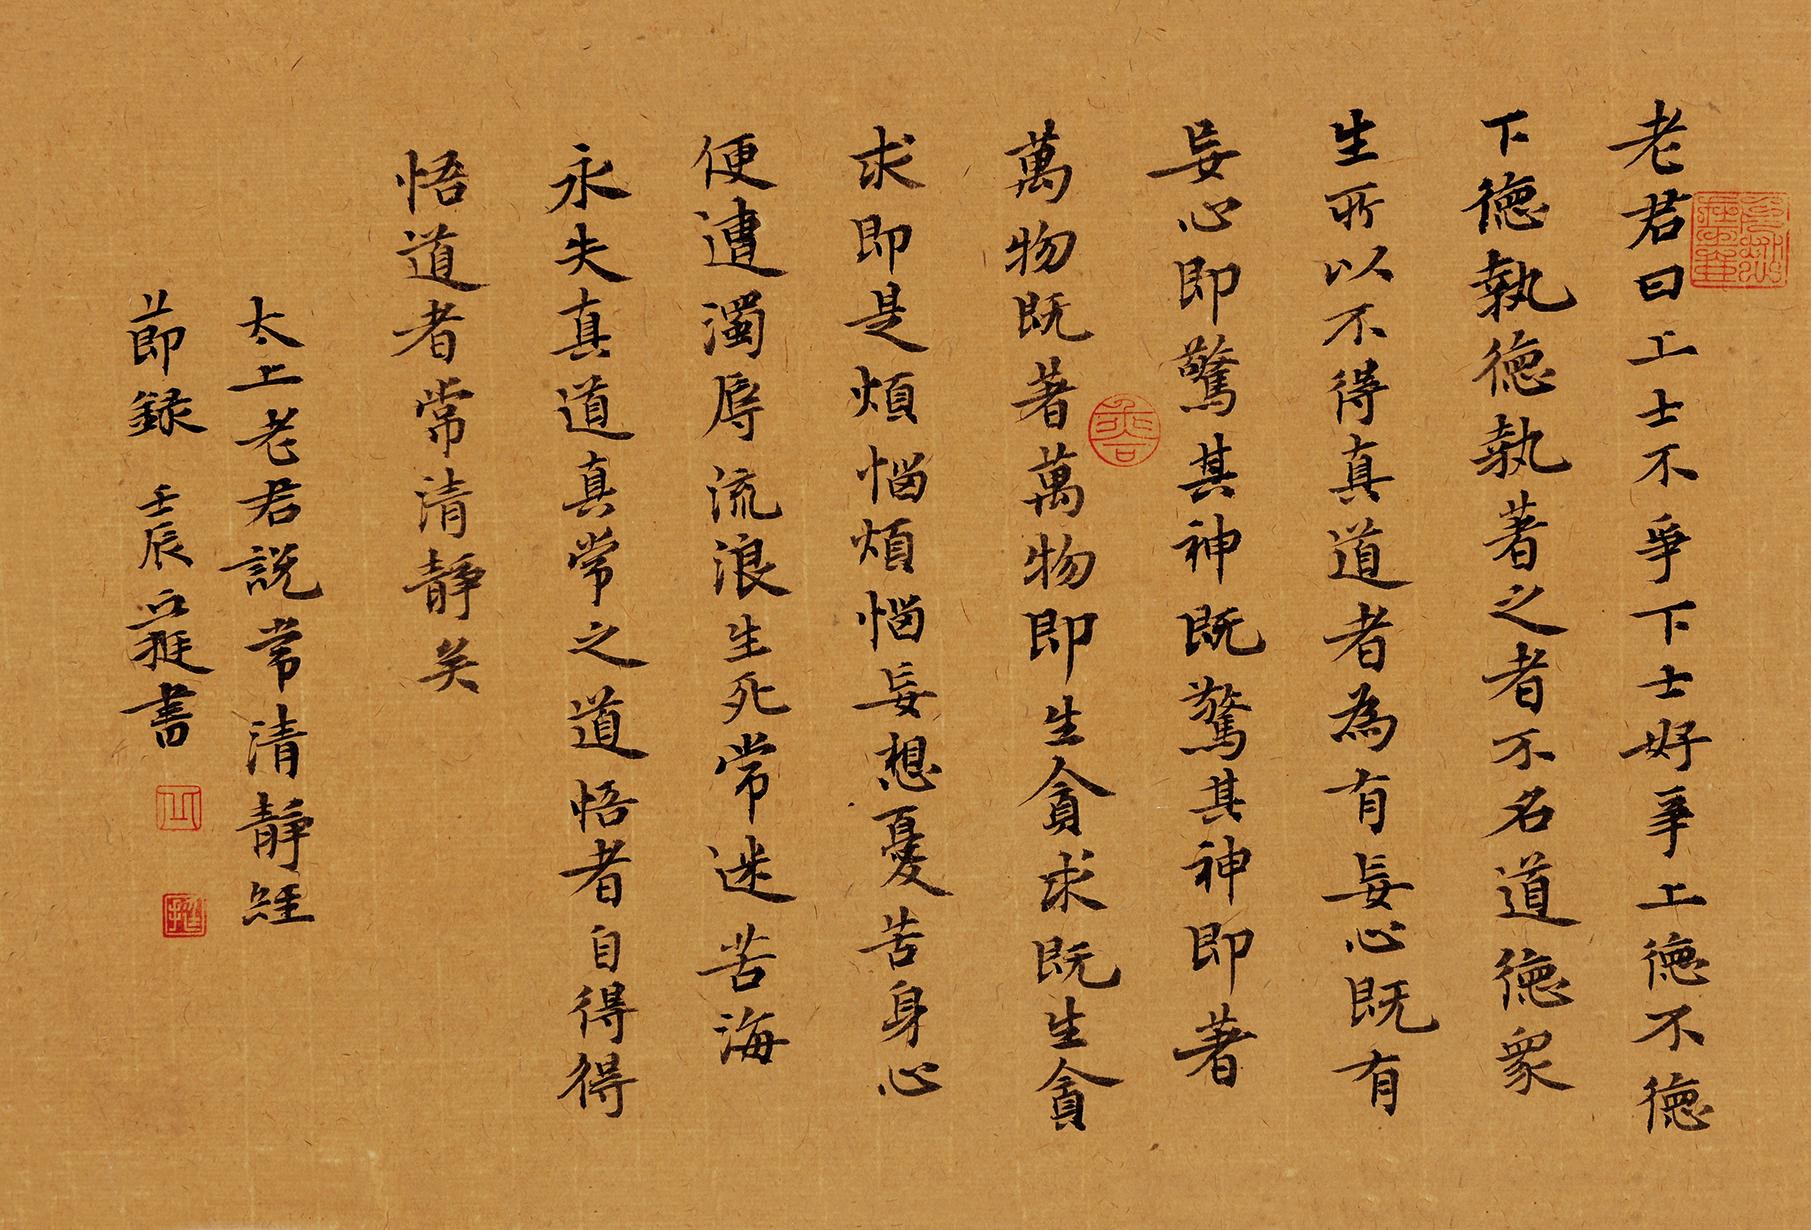 老君曰上士不爭下士好爭上德不德
下德執德執著之者不名道德眾
生所以不得真道者為有妄心既有
妄心即驚其神既驚其神即著
萬物既著萬物即生貪求既生貪
求即是煩惱煩惱妄想憂苦身心
便遭濁辱流浪生死常迷苦海
永失真道真常之道悟者自得得
悟道者常清靜矣
太上老君說常清靜經
節錄 壬辰 書